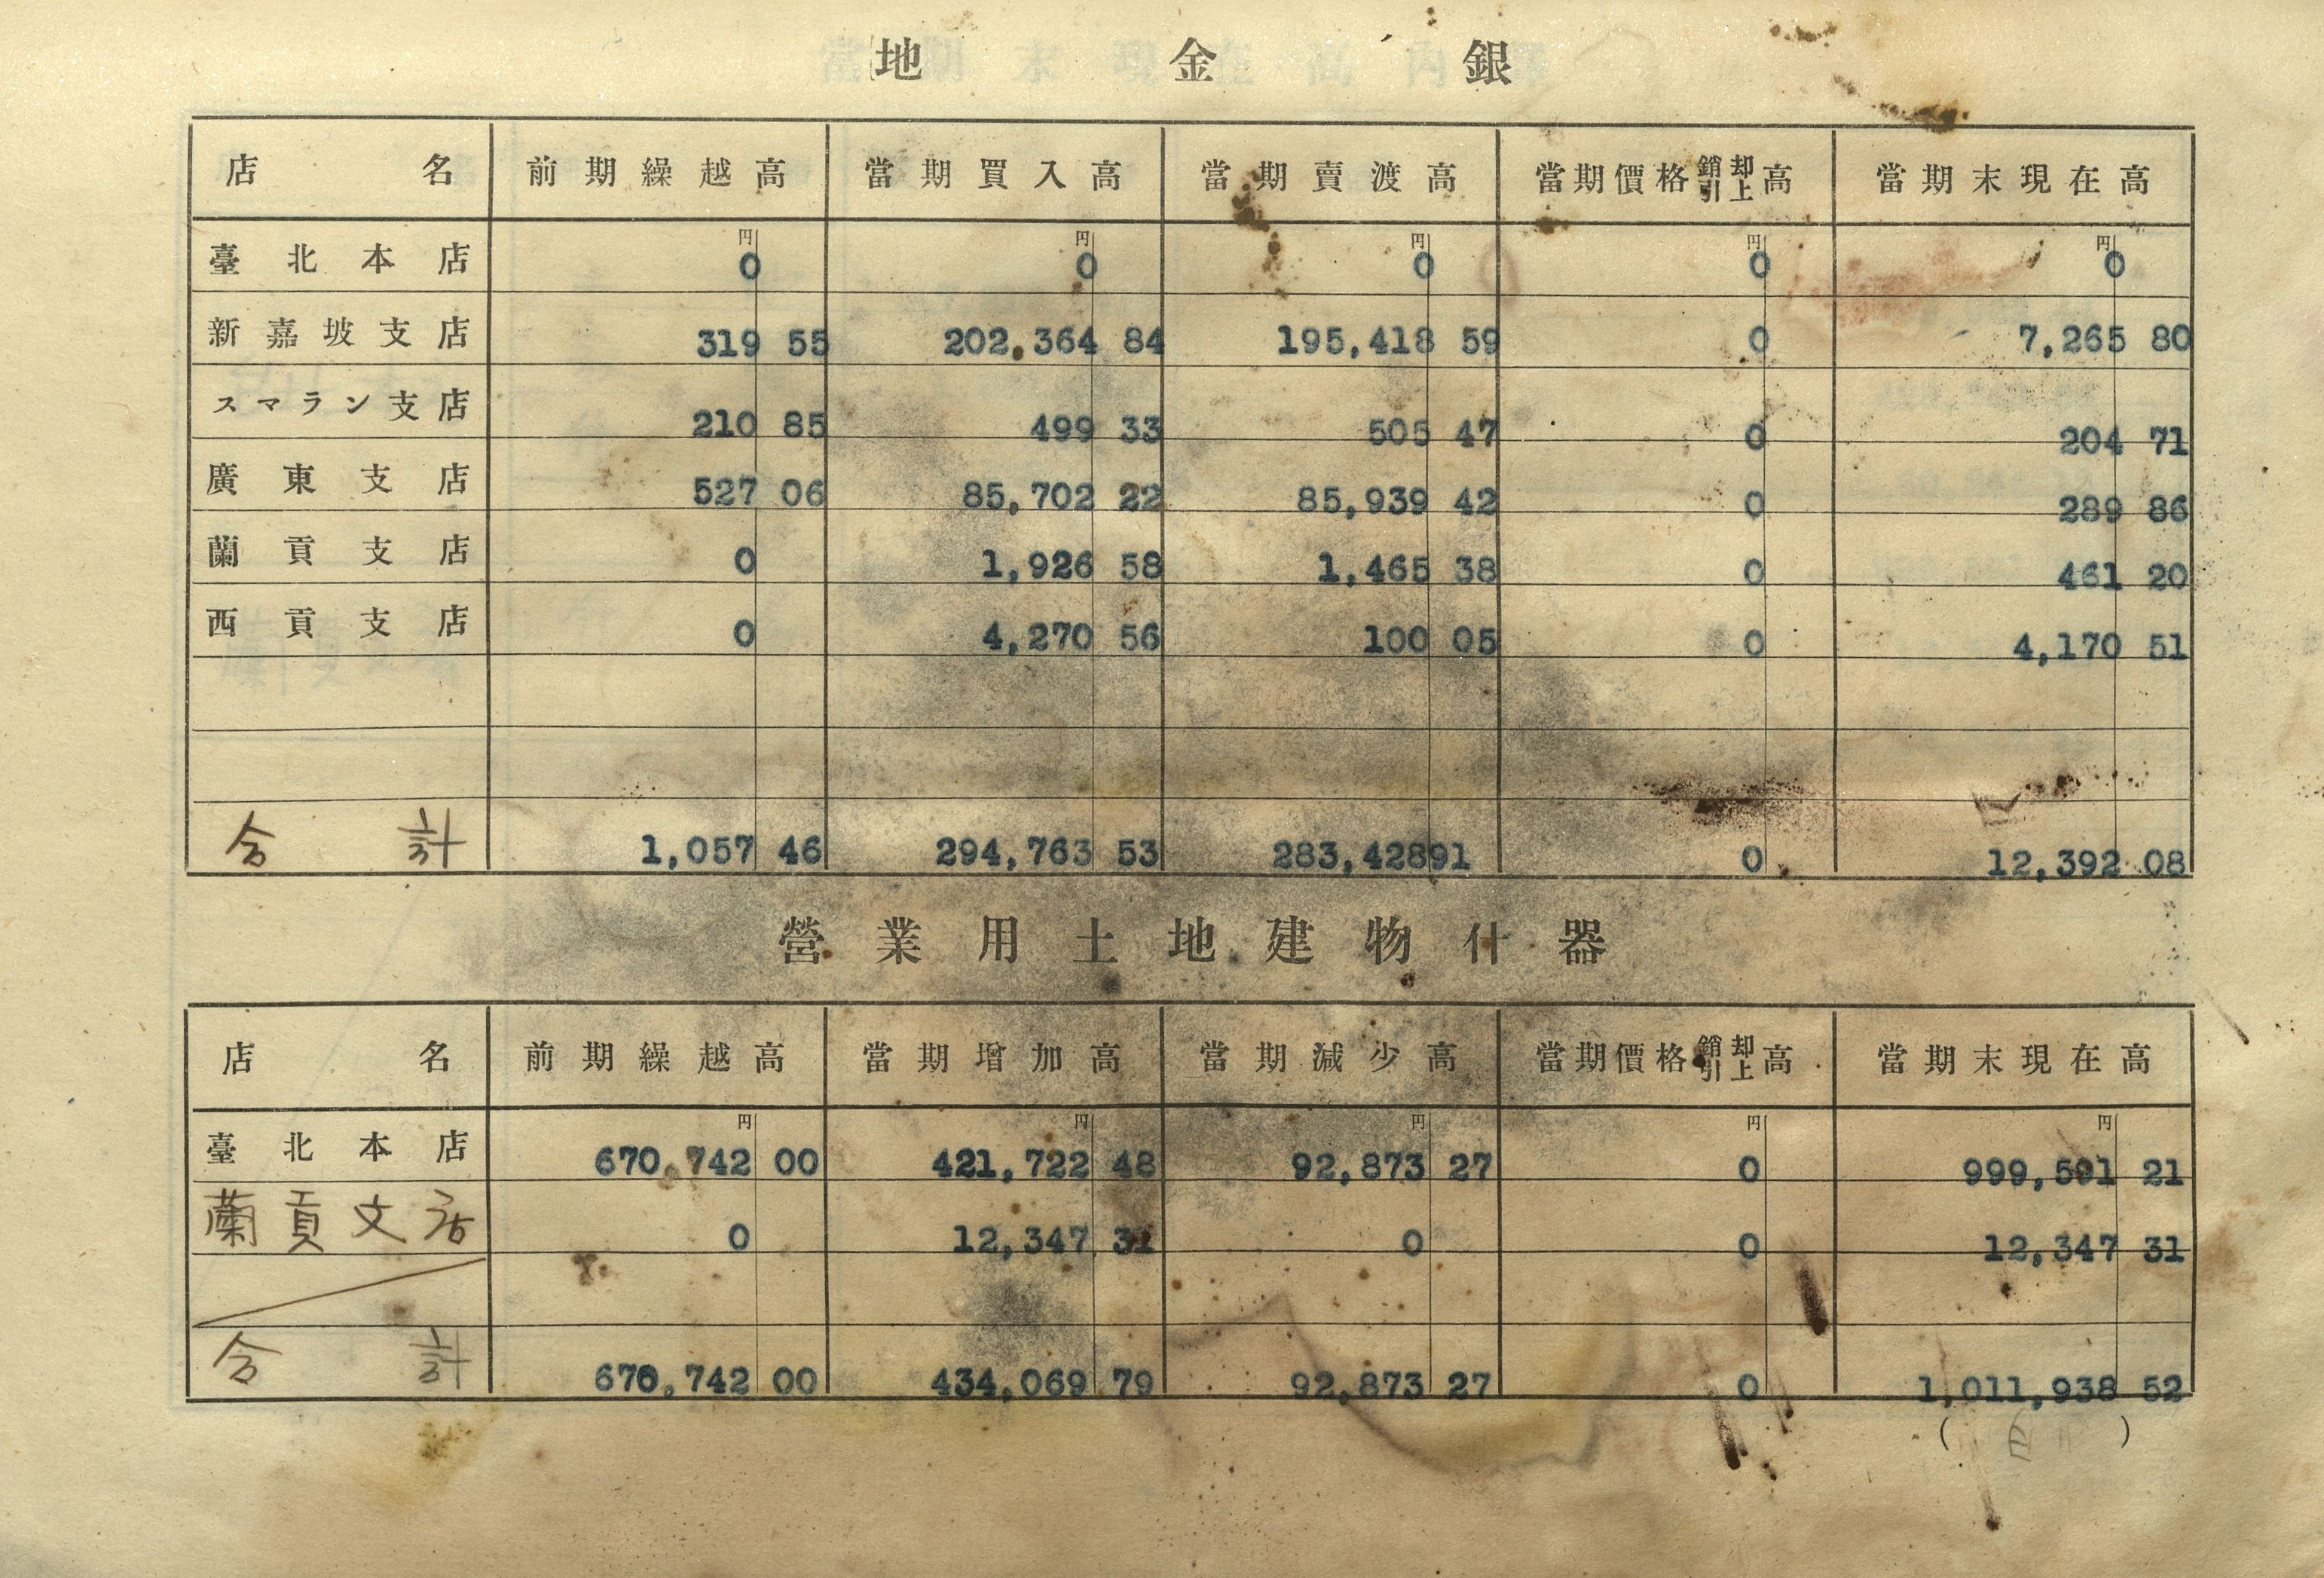 地金銀
店名 前期繰越高 當期買入高 當期賣渡高 當期價格銷却引上高 當期末現在高
円 円 円 円 円
臺北本店 0 0 0 0 0
新嘉坡支店 319 55 202,364 84 195,418 59 0 7,265 80
スマラン支店 210 85 499 33 505 47 0 204 71
廣東支店 527 06 85,702 22 85,939 42 0 289 86
蘭貢支店 0 1,926 58 1,465 38 0 461 20
西貢支店 0 4,270 56 100 05 0 4,170 51
合計 1,057 46 294,763 53 283,42891 0 12,392 08
營業用土地建物什器
店名 前期繰越高 當期增加高 當期減少高 當期價格銷却引上高 當期末現在高
円 円 円 円 円
臺北本店 670,742 00 421,722 48 92,873 27 0 999,591 21
蘭貢支店 0 12,347 31 0 0 12,347 31
合計 670,742 00 434,069 79 92,873 27 0 1,011,938 52